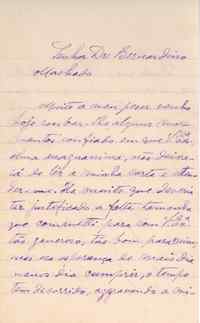 Senhor Dr Bernardino
Machado
Muito a meu pezar venho
hoje roubar-lhe alguns mo-
mentos confiado em que V. Ex.ª
alma magnanima, não deixa-
rá de ler a minha carta e atten-
der-me. Ha muito que devia
ter justificado a falta tamanha
que commetti para com V. Ex.ª
tão generoso, tão bom para com-
migo na esperança de mais dia
menos dia cumprir, o tempo
tem decorrido, aggravando a mi-